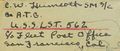 C.W. Hunsoth SM 3/C
A.T.B.
U.S.S. L.S.T. 562
c/o Fleet Post Office
San Francisco, Cal